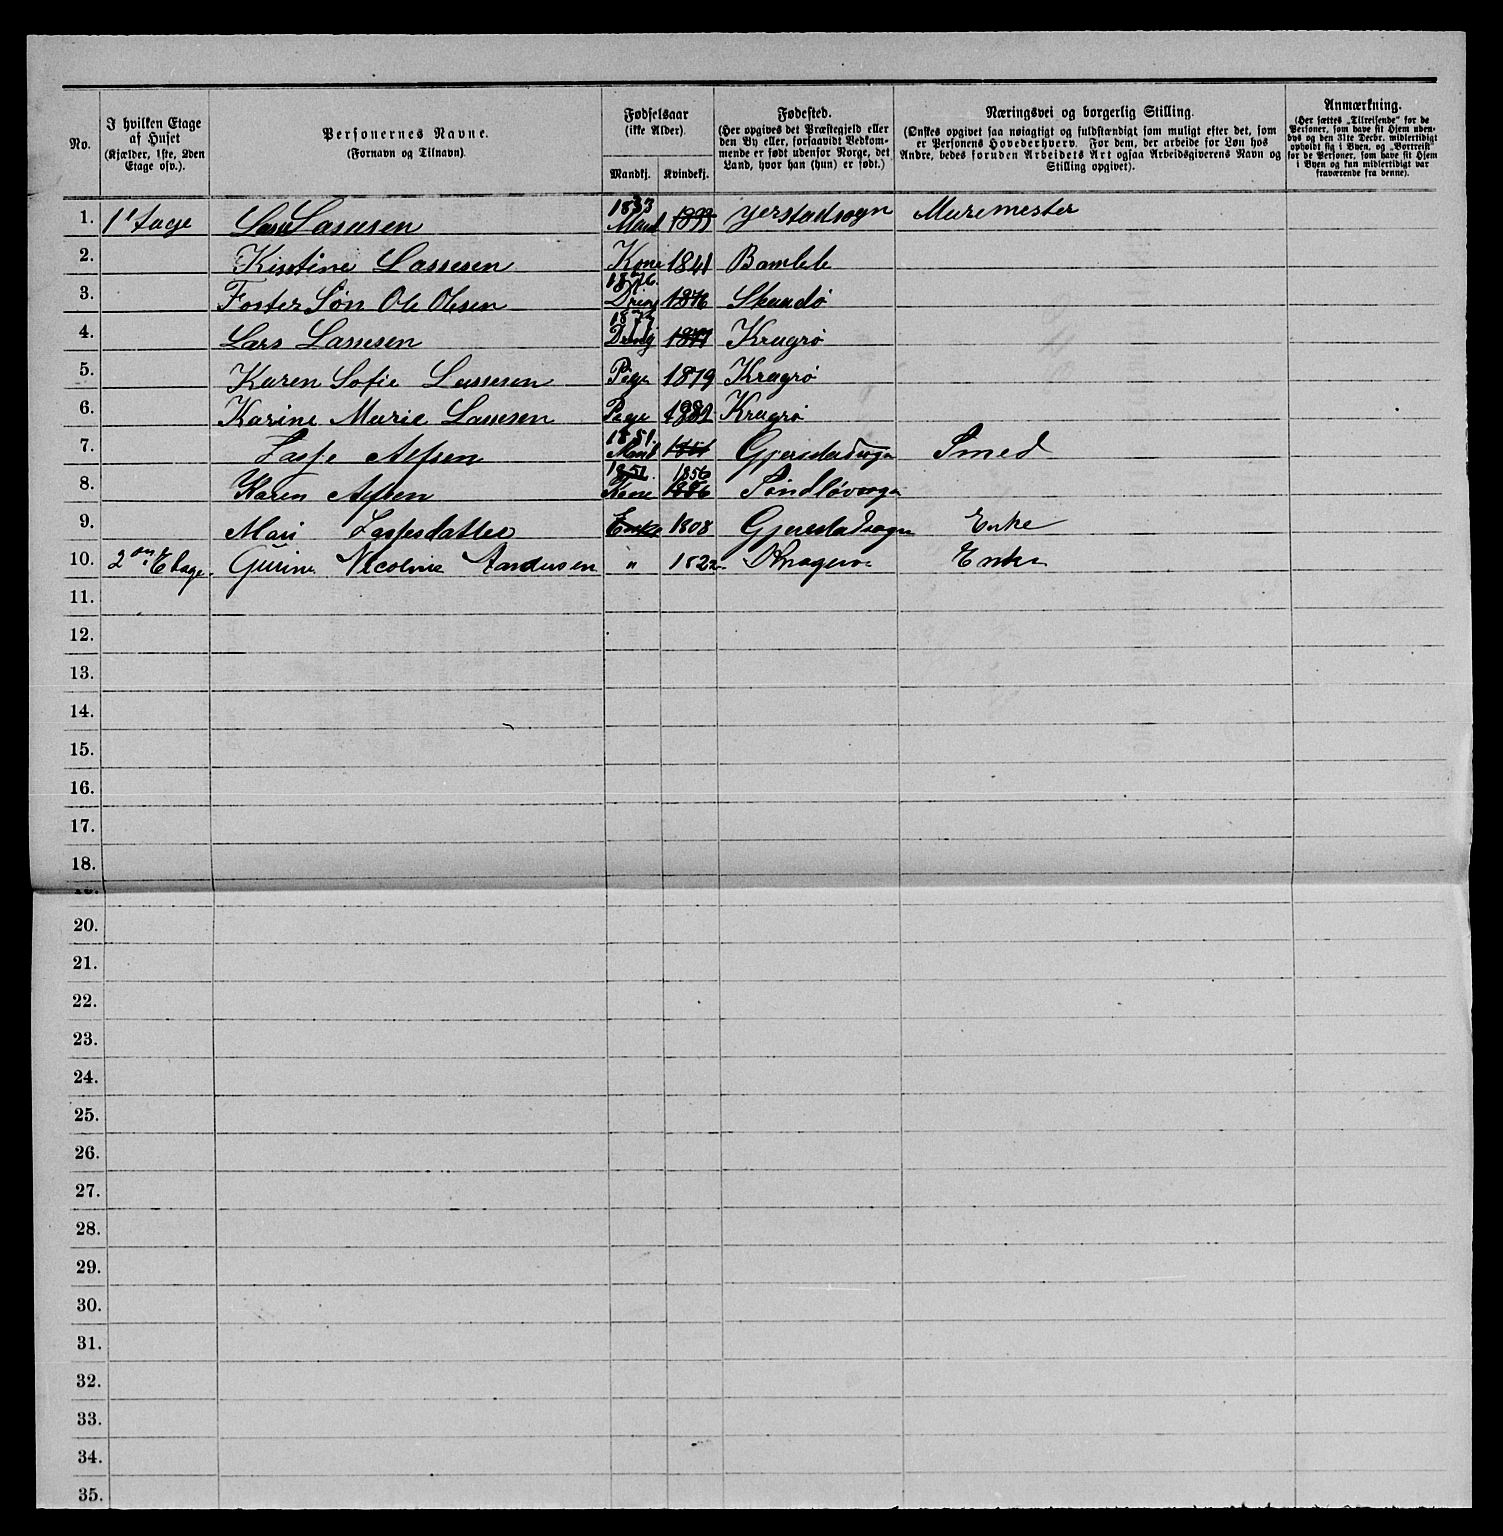 No.
I hvilken Etage af Huset (Kjælder, 1ste, 2den Etage osv.).
Personernes Navne. (Fornavn og Tilnavn).
Fødselsaar (ikke Alder).
Mandkj. Kvindekj.
Fødested. (Her opgives det Præstegjeld eller den By eller, forsaavidt Vedkommende er født udenfor Norge, det Land, hvor han (hun) er født.)
Næringsvei og borgerlig Stilling. (Ønskes opgivet saa nøiagtigt og fuldstændigt som muligt efter det, som er Personens Hovederhverv. For dem, der arbeide for Løn hos Andre, bedes foruden Arbeidets Art ogsaa Arbeidsgiverens Navn og Stilling opgivet).
Anmærkning. (Her sættes „Tilreisende" for de Personer, som have sit Hjem udenbys og den 31te Decbr. midlertidigt opholdt sig i Byen, og „Bortreist" for de Personer, som have sit Hjem i Byen og kun midlertidigt var fraværende fra denne).
1. Lassesen 1833 Mand Jerstadsogn Muremester
2. Kistine Lassesen Kone 1841 Bamble
3. Foster Søn Ole Olsen 1876. Dreng 1876 Skaadø
4. Lars Lassesen 1877 Dreng 1877 Kragrø
5. Karen Sofie Lassesen Pege 1879 Kragrø
6. Karine Marie Lassesen Pege 1882 Kragrø
7. 1851. Mand 1851 Smed
8. Karen 1851. Kone 1856 1856
9. Mari Enke 1808 Enke
10. 2den Etage. Gurine Nicoline Aandersen " 1822 Kragerø Enke
11.
12.
13.
14.
15.
16.
17.
18.
19.
20.
21.
22.
23.
24.
25.
26.
27.
28.
29.
30.
31.
32.
33.
34.
35.